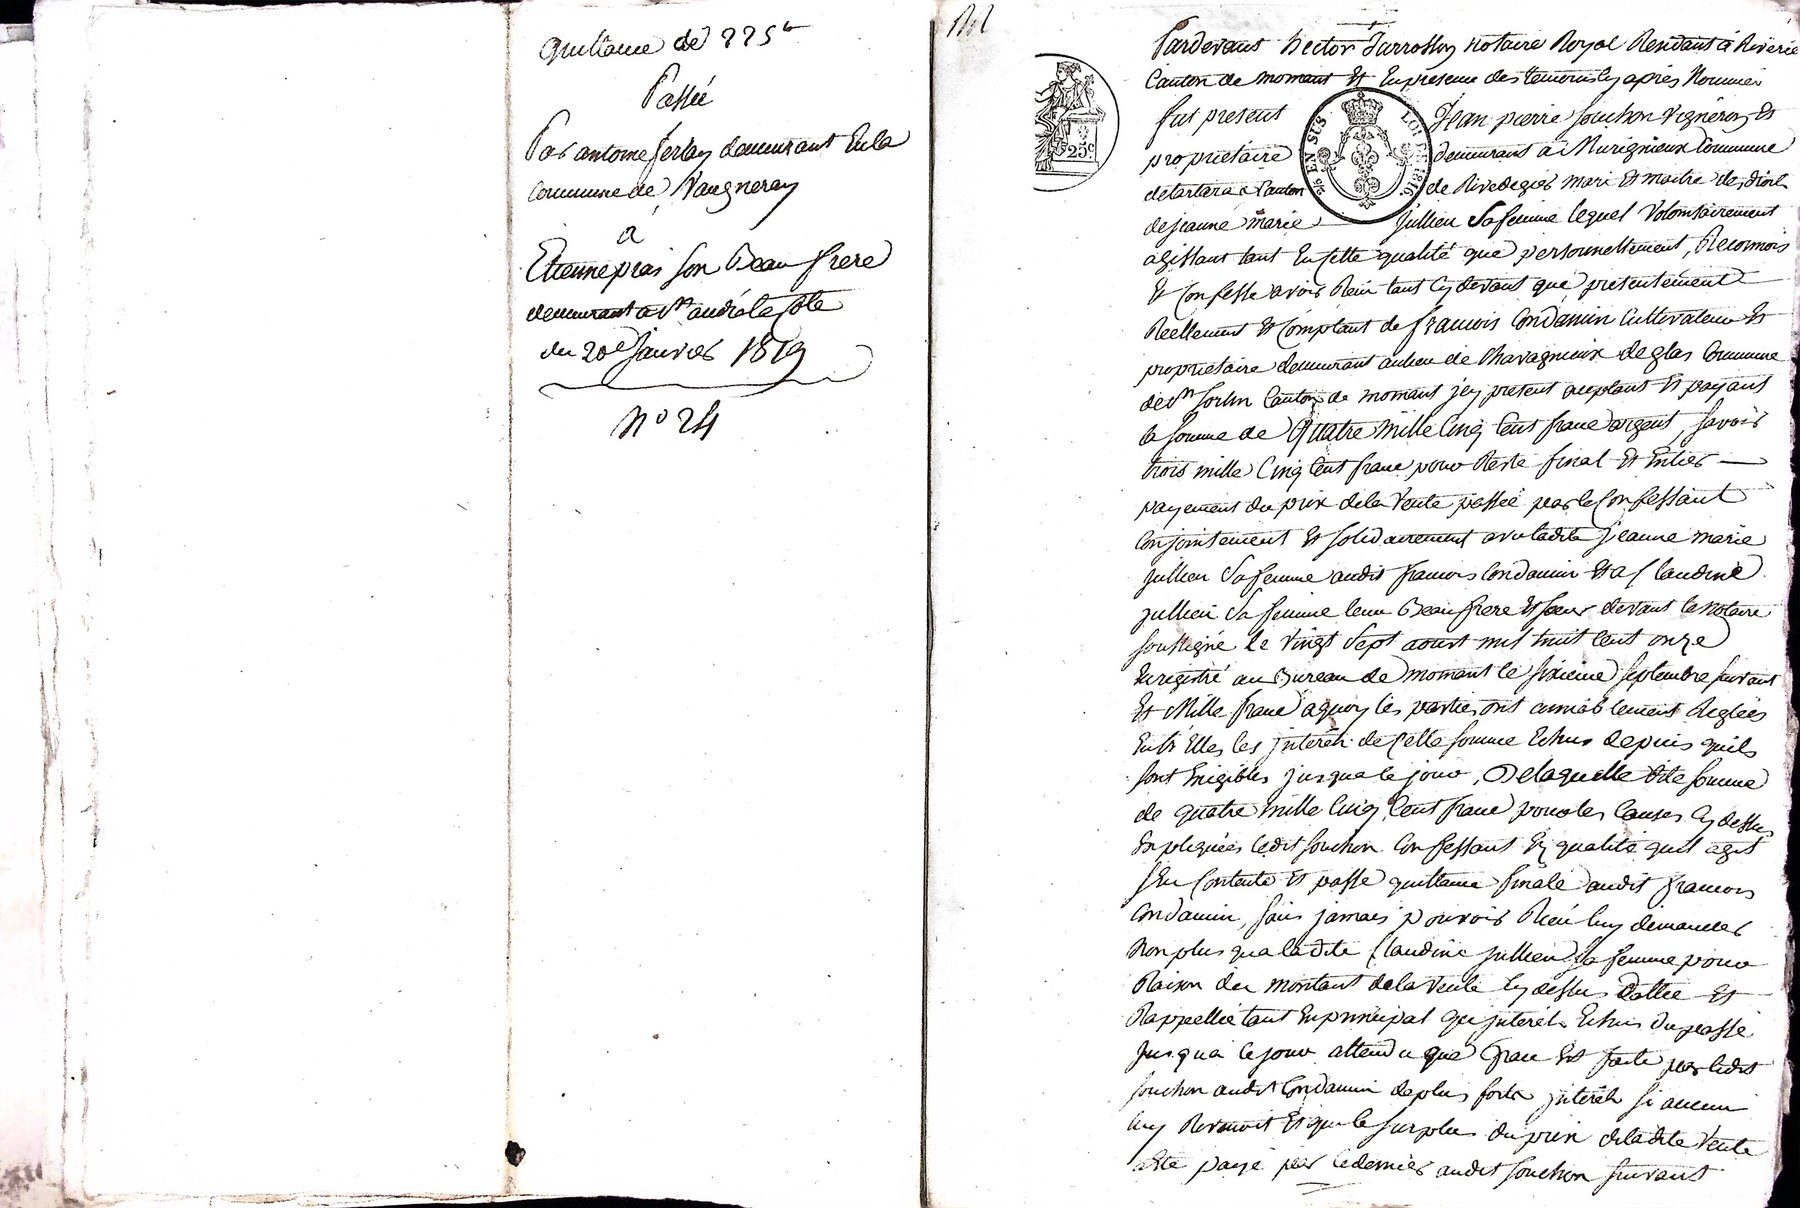 quittance de 225 tt
Passée
Par antoine ferlay demeurant En la
commune de Vaugneray
a
Etienne pras son Beau frere
demeurant a St andré la Cote
du 20e Janvier 1819
No 24
Pardevant hector Jarrosson notaire Royal Residant a Riverie
Canton de mornant Et En presence des temoins Cy après Nommés
fut present Jean pierre souchon vigneron Et
proprietaire demeurant a Murignieux Commune
de tartara Canton de Rivedegier mari Et maitre des droits
de jeanne marie jullien Sa femme lequel Volontairement
agissant tant En Cette qualité que personnellement, Reconnois
Et Confesse avoir Recu tant Cy devant que presentement
Reellement Et Comptant de francois Condamin Cultivateur Et
proprietaire demeurant au lieu de Chavagnieux de glas Commune
de St Sorlin Canton de mornant jcy present aceptant Et payant
la somme de Quatre mille Cinq Cent franc argent, savoir
trois mille Cinq Cent franc pour Reste final Et Entier
payement du prix de la Vente passée par le Confessant
Conjointement Et solidairement avec ladite jeanne marie
jullien Sa femme audit francois Condamin Et a Claudine
jullien Sa femme leur Beau frere Et sœur devant le notaire
soussigné le vingt Sept aoust mil huit Cent onze
Enregistré au Bureau de mornant le sixieme septembre suivant
Et Mille franc a quoy les parties ont amiablement Reglées
Entr Elles les jnterêts de Cette somme Echus depuis quils
sont Exigibles jusqua Ce jour, De laquelle dite somme
de quatre mille Cinq Cent franc pour les Causes Cy dessus
Expliquées ledit souchon Confessant En qualité quil agit
sen Contente Et passe quittance finale audit francois
Condamin, sans jamais pouvoir Rien luy demander
Non plus qua ladite Claudine jullien Sa femme pour
Raison du montant de la Vente Cy dessus Dattée Et
Rappellée tant En principal que jnterêts Echus du passé
jusqu'a Ce jour attendu que Grace Est faite par ledit
souchon audit Condamin de plus forts jnterêts si aucun
luy Revenoit Et que le surplus du prix de ladite Vente
a Eté payé par Ce dernier audit souchon suivant
25c
EN SUS
LOI DE 1816